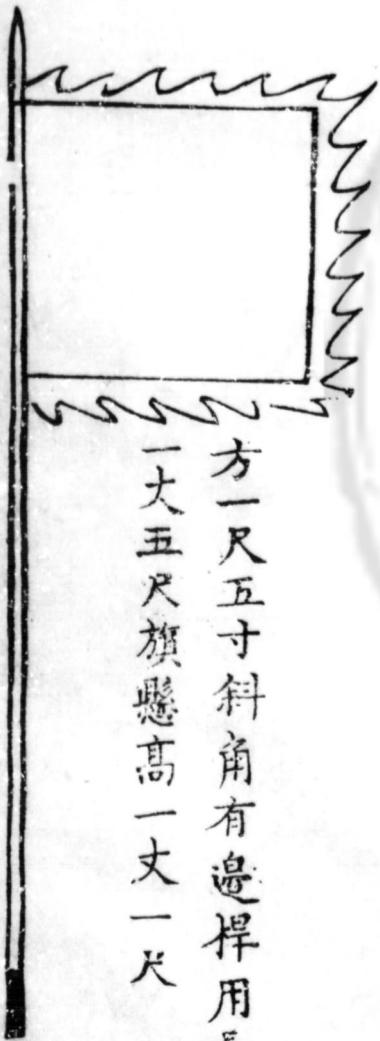 方一尺五寸斜角有邊桿用
一大五尺旗懸高一丈一尺